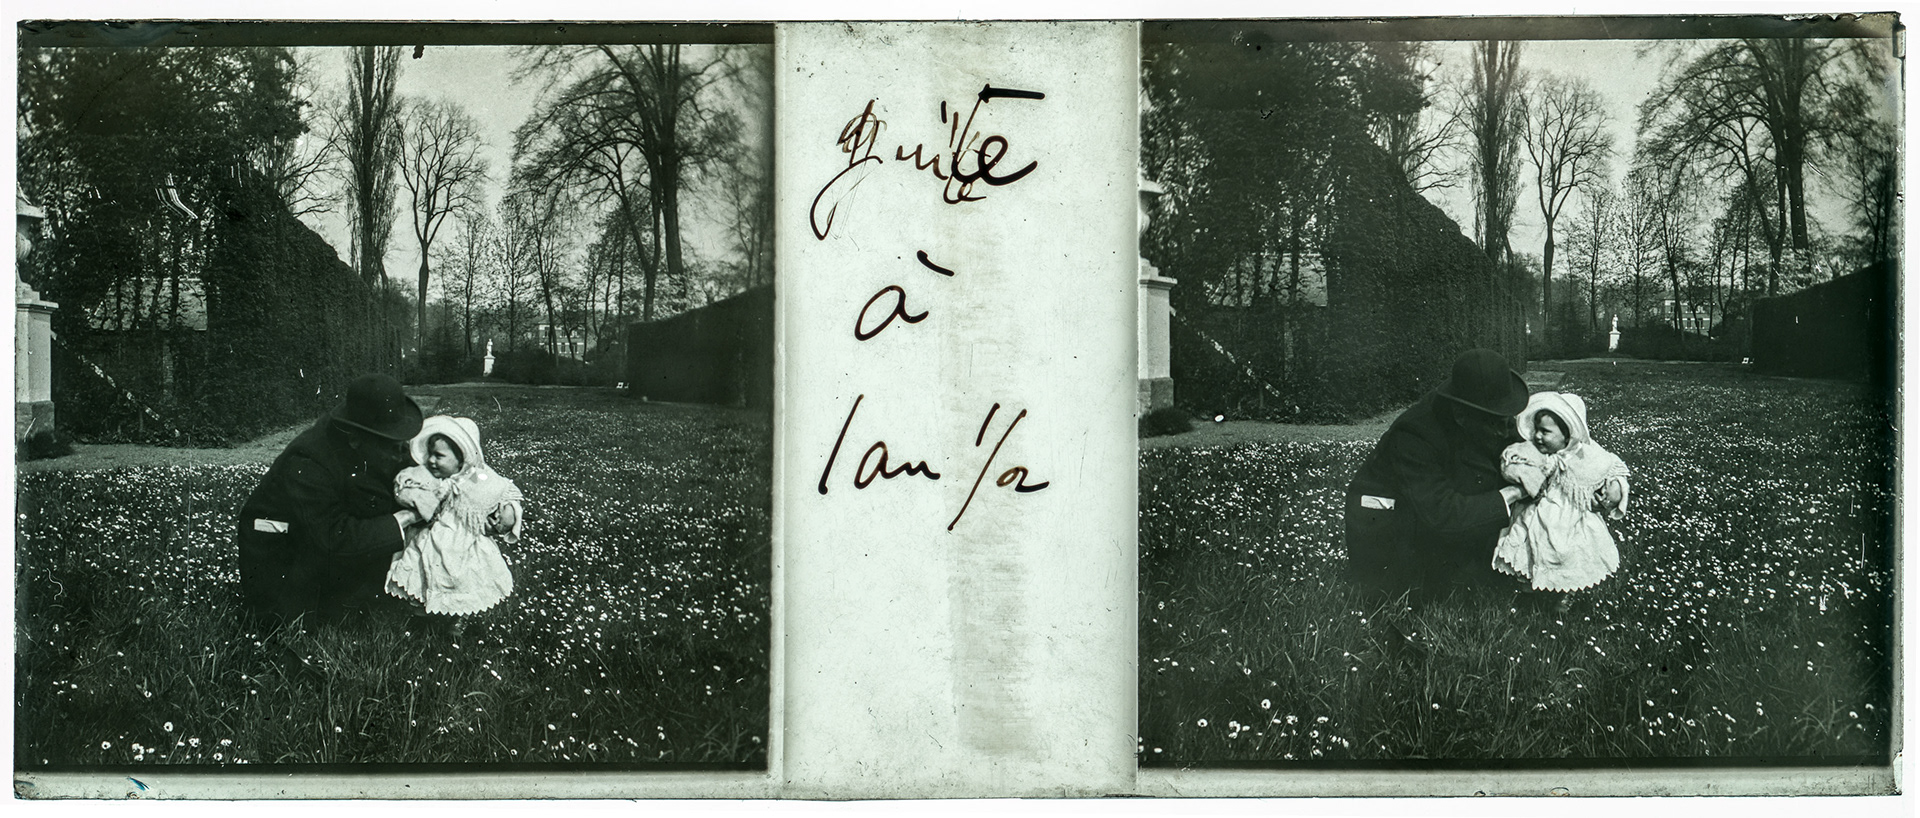 guite
à
1 an 1/2